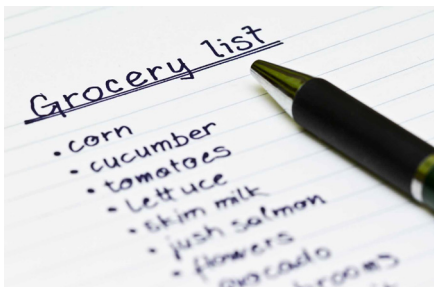 Grocery list
• corn
• cucumber
• tomatoes
• lettuce
• skim milk
• salmon
• flowers
avocado